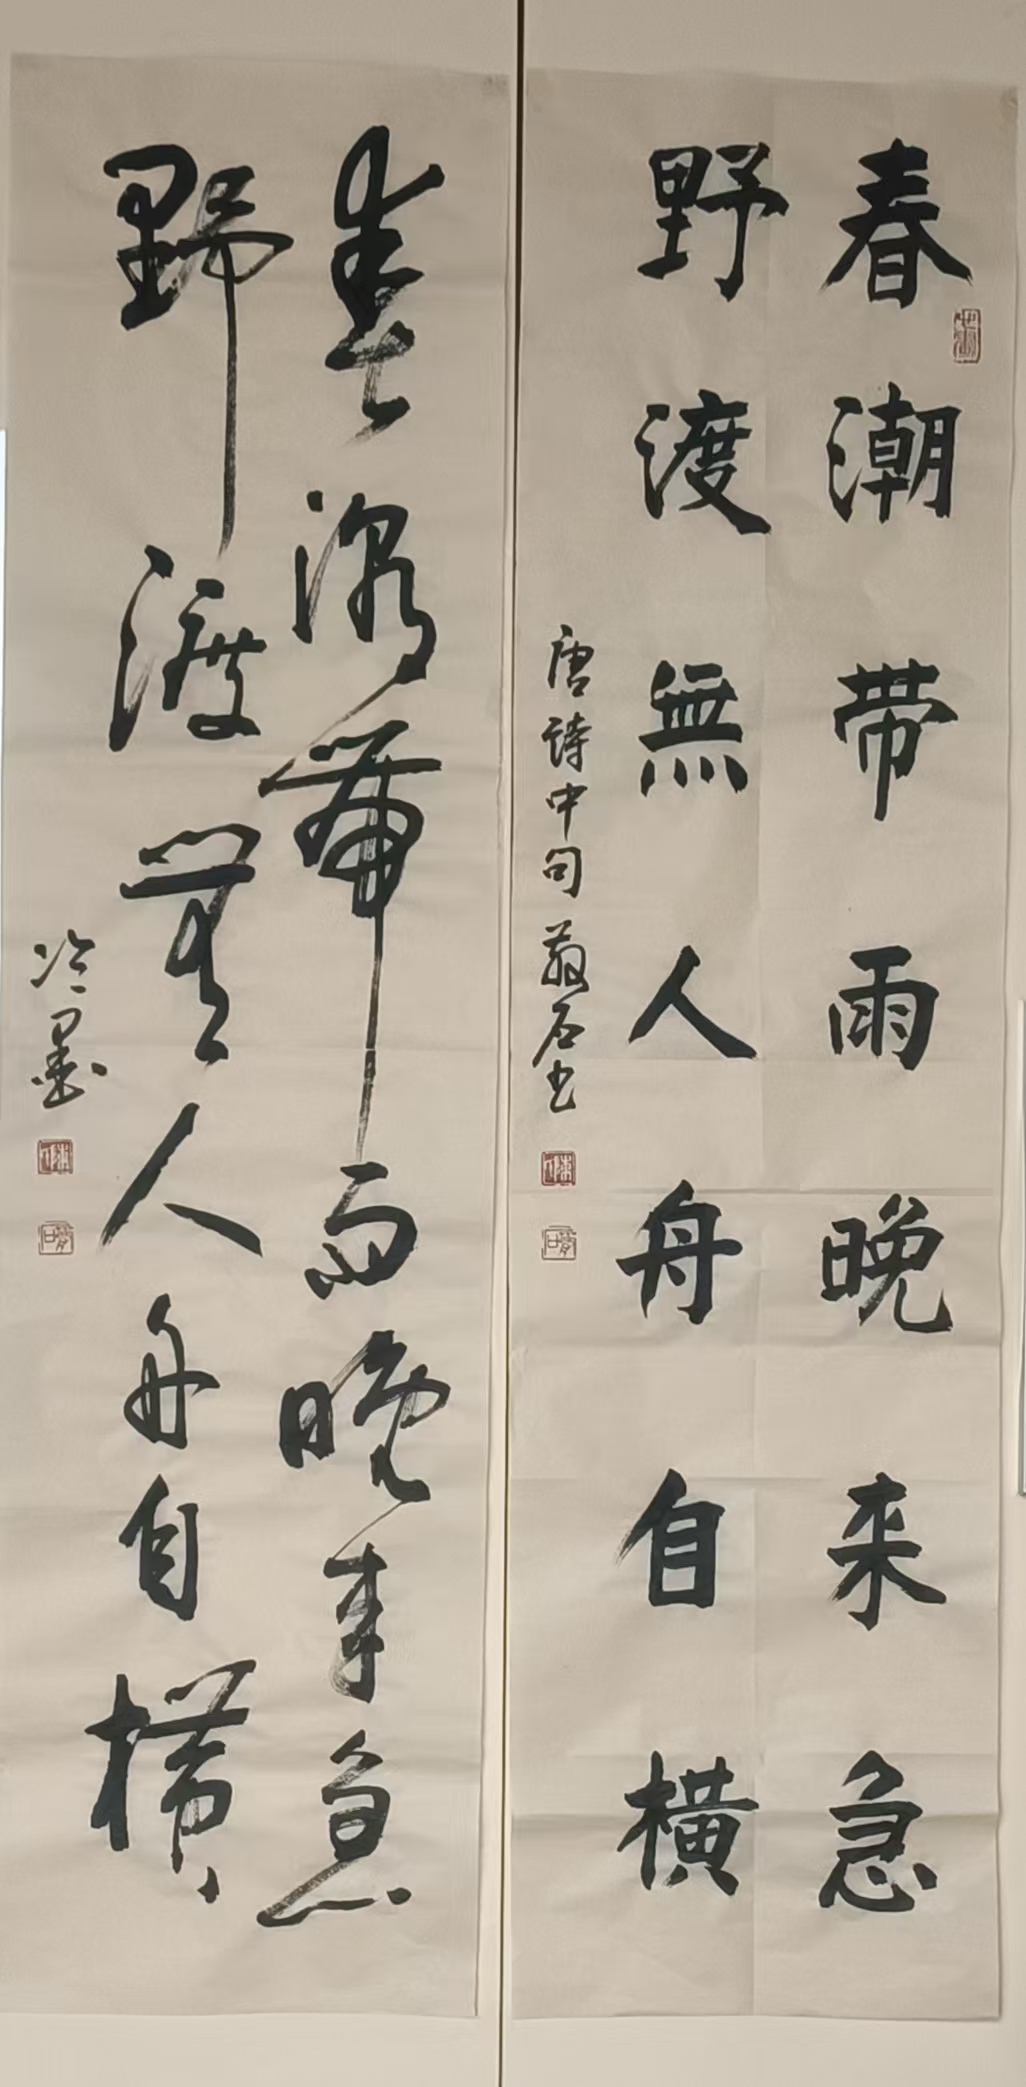 春潮带雨晚来急
野渡無人舟自横
唐诗中句 敬石书
春潮带雨晚来急
野渡无人舟自横
冷墨